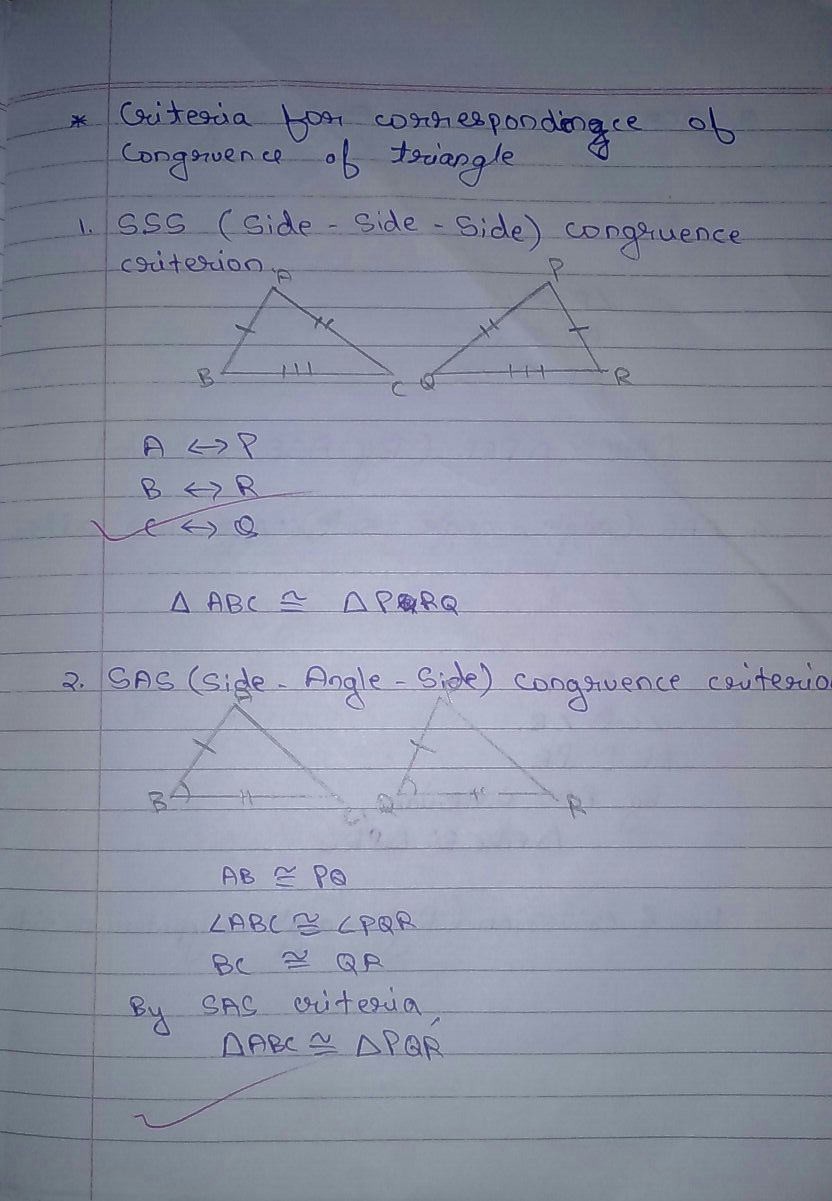 * Criteria for correspondence of
Congruence of triangle
1. SSS (Side - Side - Side) congruence
criterion.
A P
B C Q R
A ↔ P
B ↔ R
C ↔ Q
Δ ABC ≅ Δ PRQ
2. SAS (Side - Angle - Side) congruence criterio
B C Q R
AB ≅ PQ
∠ABC ≅ ∠PQR
BC ≅ QR
By SAS criteria,
ΔABC ≅ ΔPQR